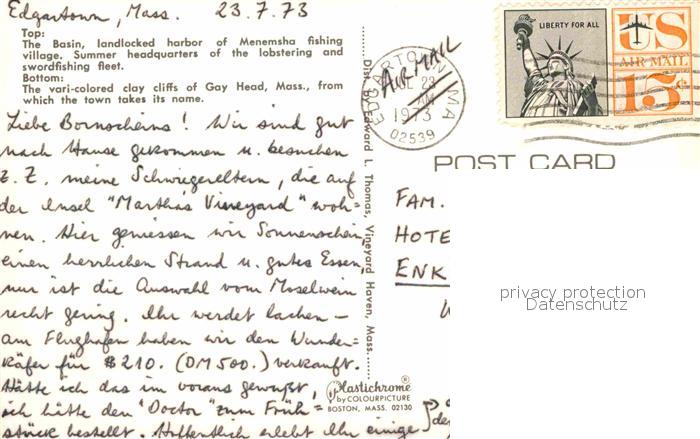 Edgartown, Mass. 23.7.73
Top:
The Basin, landlocked harbor of Menemsha fishing
village. Summer headquarters of the lobstering and
swordfishing fleet.
Bottom:
The vari-colored clay cliffs of Gay Head, Mass., from
which the town takes its name.
Liebe Bornscheins! Wir sind gut
nach Hause gekommen u. besuchen
z. Z. meine Schwiegereltern, die auf
der Insel "Martha's Vineyard" woh=
nen. Hier geniessen wir Sonnenschein,
einen herrlichen Strand u. gutes Essen,
nur ist die Auswahl vom Moselwein
recht gering. Ihr werdet lachen –
am Flughafen haben wir den Wunder-
käfer für $210. (DM 500.) verkauft.
Hätte ich das im voraus gewußt,
ich hätte den "Doctor" zum Früh=
stück bestellt. Hoffentlich erlebt Ihr einige
Edward L. Thomas, Vineyard Haven, Mass.
Plastichrome®
by COLOURPICTURE
BOSTON, MASS. 02130
AIR MAIL
23
AM
1973
MA
02539
LIBERTY FOR ALL
US
AIR MAIL
15¢
POST CARD
FAM.
HOTE
ENK
privacy protection
Datenschutz